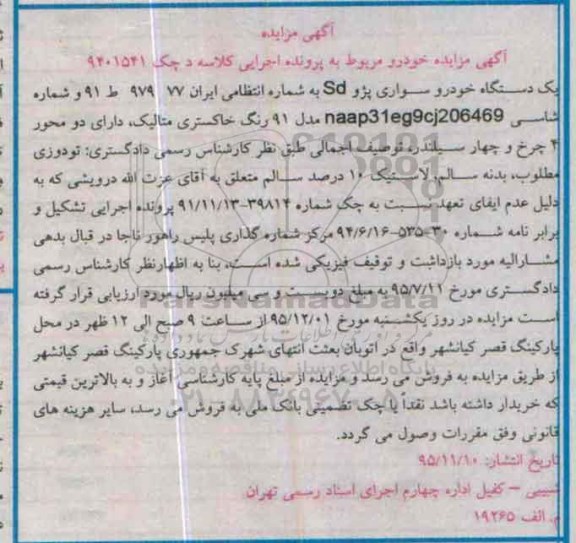 آگهی مزایده
آگهی مزایده خودرو مربوط به پرونده اجرایی کلاسه د چک ۹۴۰۱۵۴۱
یک دستگاه خودرو سواری پژو Sd به شماره انتظامی ایران ۷۷ ۹۷۹ ط ۹۱ و شماره
شاسی naap31eg9cj206469 مدل ۹۱ رنگ خاکستری متالیک، دارای دو محور
۴ چرخ و چهار سیلندر، توصیف اجمالی طبق نظر کارشناس رسمی دادگستری: تودوزی
مطلوب، بدنه سالم، لاستیک ۱۰ درصد سالم متعلق به آقای عزت الله درویشی که به
دلیل عدم ایفای تعهد نسبت به چک شماره ۳۹۸۱۴-۹۱/۱۱/۱۳ پرونده اجرایی تشکیل و
برابر نامه شماره ۳۰-۵۳۵-۹۴/۶/۱۶ مرکز شماره گذاری پلیس راهور ناجا در قبال بدهی
مشارالیه مورد بازداشت و توقیف فیزیکی شده است، بنا به اظهارنظر کارشناس رسمی
دادگستری مورخ ۹۵/۷/۱۱ به مبلغ دویست و سی میلیون ریال مورد ارزیابی قرار گرفته
است مزایده در روز یکشنبه مورخ ۹۵/۱۲/۰۱ از ساعت ۹ صبح الی ۱۲ ظهر در محل
پارکینگ قصر کیانشهر واقع در اتوبان بعثت انتهای شهرک جمهوری پارکینگ قصر کیانشهر
از طریق مزایده به فروش می رسد و مزایده از مبلغ پایه کارشناسی آغاز و به بالاترین قیمتی
که خریدار داشته باشد نقداً یا چک تضمینی بانک ملی به فروش می رسد، سایر هزینه های
قانونی وفق مقررات وصول می گردد.
تاریخ انتشار: ۹۵/۱۱/۱۰
شبیبی – کفیل اداره چهارم اجرای اسناد رسمی تهران
م. الف ۱۹۲۶۵